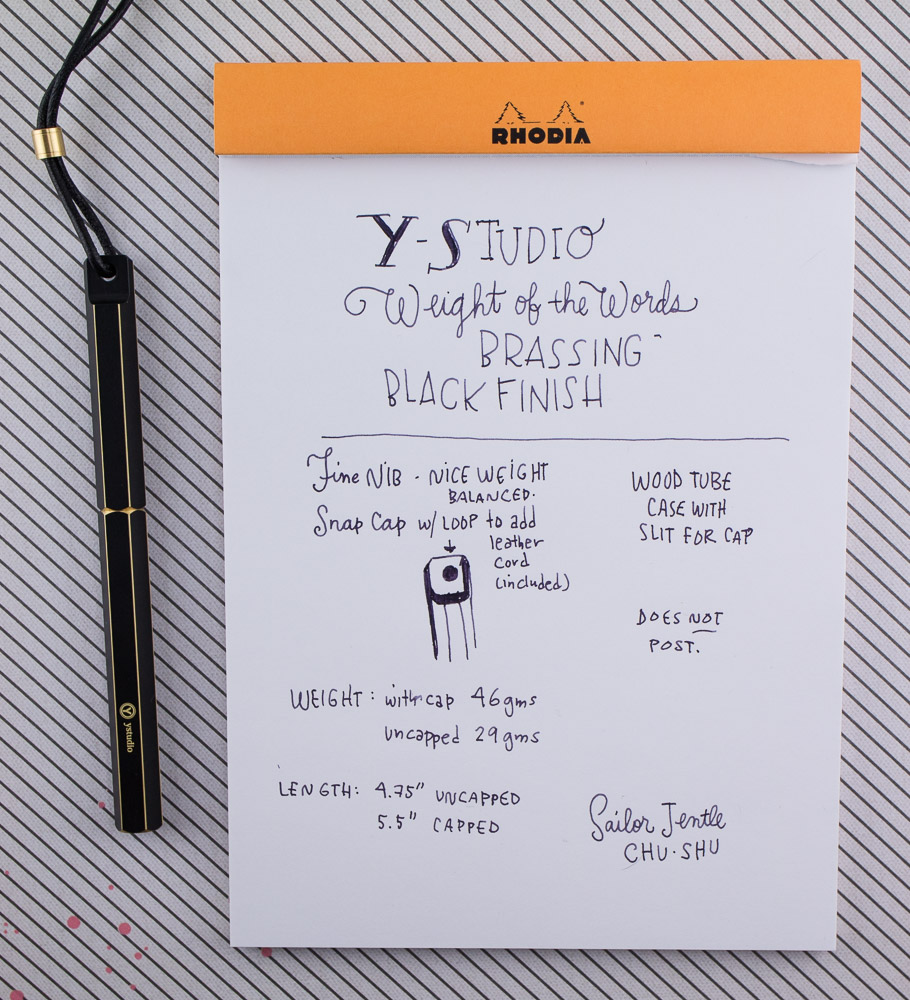 RHODIA
Y-STUDIO
Weight of the Words
BRASSING
BLACK FINISH
Fine NIB - NICE WEIGHT
BALANCED.
Snap Cap w/ LOOP to add
leather
cord
(included)
WOOD TUBE
CASE WITH
SLIT FOR CAP
DOES NOT
POST.
WEIGHT: with cap 46gms
uncapped 29gms
LENGTH: 4.75" UNCAPPED
5.5" CAPPED
Sailor Jentle
CHU-SHU
ystudio